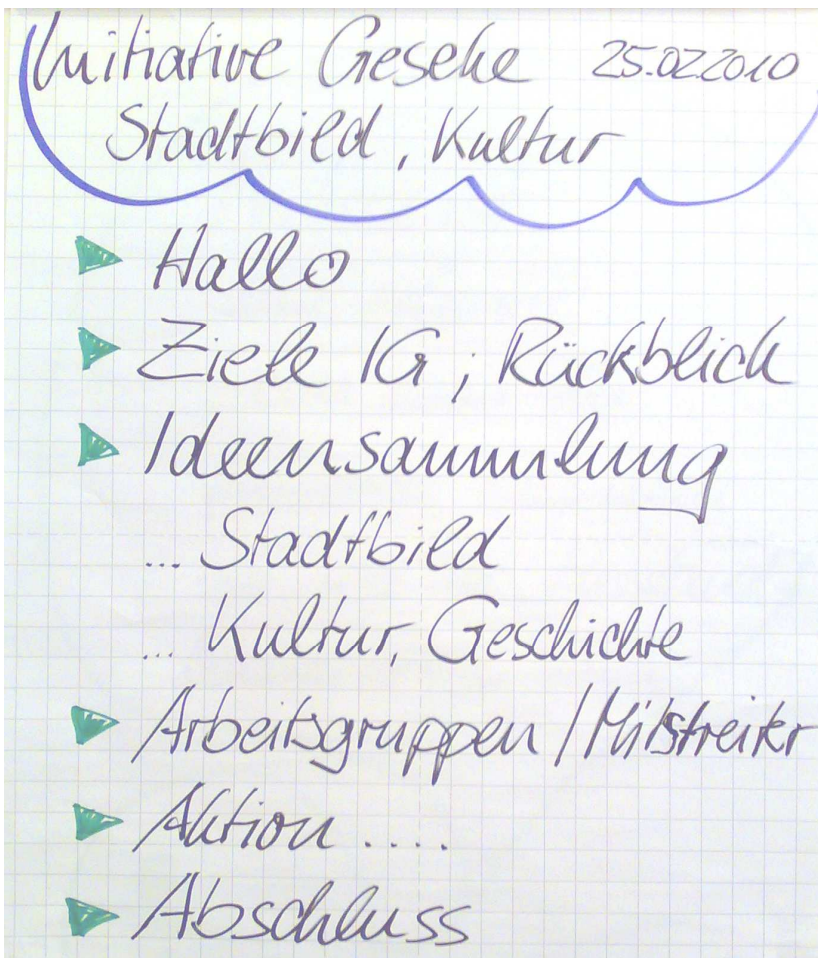 Initiative Geseke 25.02.2010
Stadtbild, Kultur
Hallo
Ziele IG; Rückblick
Ideensammlung
... Stadtbild
... Kultur, Geschichte
Arbeitsgruppen/Mitstreiter
Aktion ....
Abschluss